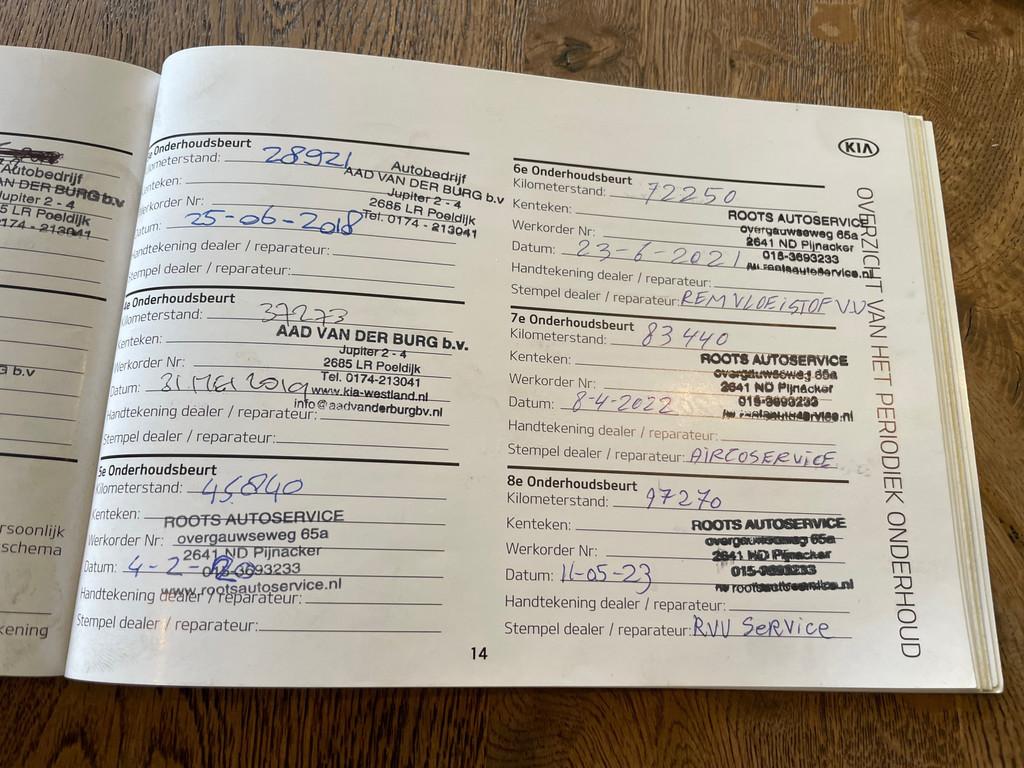 Autobedrijf
AN DER BURG b.v
Jupiter 2 - 4
5 LR Poeldijk
174 - 213041
b.v
rsoonlijk
schema
kening
e Onderhoudsbeurt
lometerstand: 28921
Autobedrijf
AAD VAN DER BURG b.v
enteken:
Jupiter 2 - 4
erkorder Nr:
2685 LR Poeldijk
atum: 25-06-2018
Tel. 0174 - 213041
Handtekening dealer / reparateur:
Stempel dealer / reparateur:
4e Onderhoudsbeurt
Kilometerstand: 37273
AAD VAN DER BURG b.v.
Kenteken:
Jupiter 2 - 4
Werkorder Nr:
2685 LR Poeldijk
Tel. 0174-213041
Datum: 31 MEI 2019
www.kia-westland.nl
info@aadvanderburgbv.nl
Handtekening dealer / reparateur:
Stempel dealer / reparateur:
5e Onderhoudsbeurt
Kilometerstand: 45840
Kenteken:
ROOTS AUTOSERVICE
Werkorder Nr:
overgauwseweg 65a
2641 ND Pijnacker
Datum: 4-2-20
015-3693233
www.rootsautoservice.nl
Handtekening dealer / reparateur:
Stempel dealer / reparateur:
14
KIA
OVERZICHT VAN HET PERIODIEK ONDERHOUD
6e Onderhoudsbeurt
Kilometerstand: 72250
Kenteken:
ROOTS AUTOSERVICE
Werkorder Nr:
overgauwseweg 65a
2641 ND Pijnacker
Datum: 23-6-2021
015-3693233
rootsautoservice.nl
Handtekening dealer / reparateur:
Stempel dealer / reparateur: REMVLOEISTOF V.V
7e Onderhoudsbeurt
Kilometerstand: 83440
Kenteken:
ROOTS AUTOSERVICE
overgauwseweg 65a
Werkorder Nr:
2641 ND Pijnacker
Datum: 8-4-2022
015-3693233
rootsautoservice.nl
Handtekening dealer / reparateur:
Stempel dealer / reparateur: AIRCOSERVICE
8e Onderhoudsbeurt
Kilometerstand: 97270
Kenteken:
ROOTS AUTOSERVICE
overgauwseweg 65a
Werkorder Nr:
2641 ND Pijnacker
Datum: 11-05-23
015-3693233
rootsautoservice.nl
Handtekening dealer / reparateur:
Stempel dealer / reparateur: RVV SERVICE